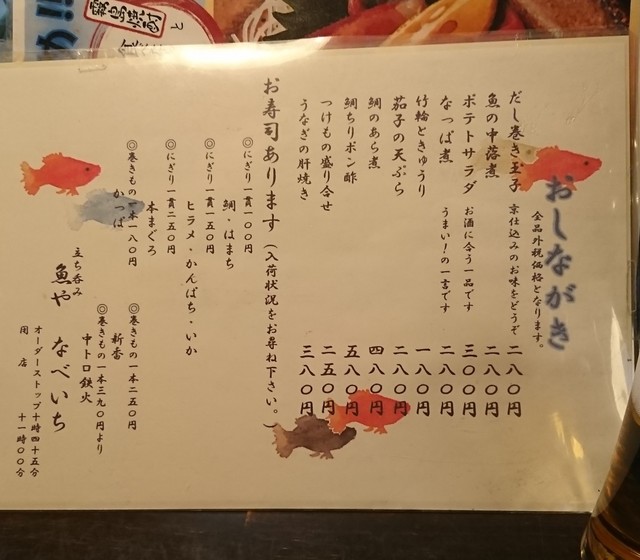 霧島焼酎
と
おしながき
全品外税価格となります。
だし巻き玉子 京仕込みのお味をどうぞ 二八〇円
魚の中落煮 二八〇円
ポテトサラダ お酒に合う一品です 三〇〇円
なっぱ煮 うまい!の一言です 二八〇円
竹輪ときゅうり 一八〇円
茄子の天ぷら 二八〇円
鯛のあら煮 四八〇円
鯛ちりポン酢 五八〇円
つけもの盛り合せ 二五〇円
うなぎの肝焼き 三八〇円
お寿司あります(入荷状況をお尋ね下さい。)
◎にぎり一貫一〇〇円
鯛・はまち
◎にぎり一貫一五〇円
ヒラメ・かんぱち・いか
◎にぎり一貫二五〇円
本まぐろ
◎巻きもの一本一八〇円
かっぱ
◎巻きもの一本二五〇円
新香
◎巻きもの一本三九〇円より
中トロ鉄火
立ち呑み
魚や なべいち
オーダーストップ十時四十五分
閉店 十一時〇〇分